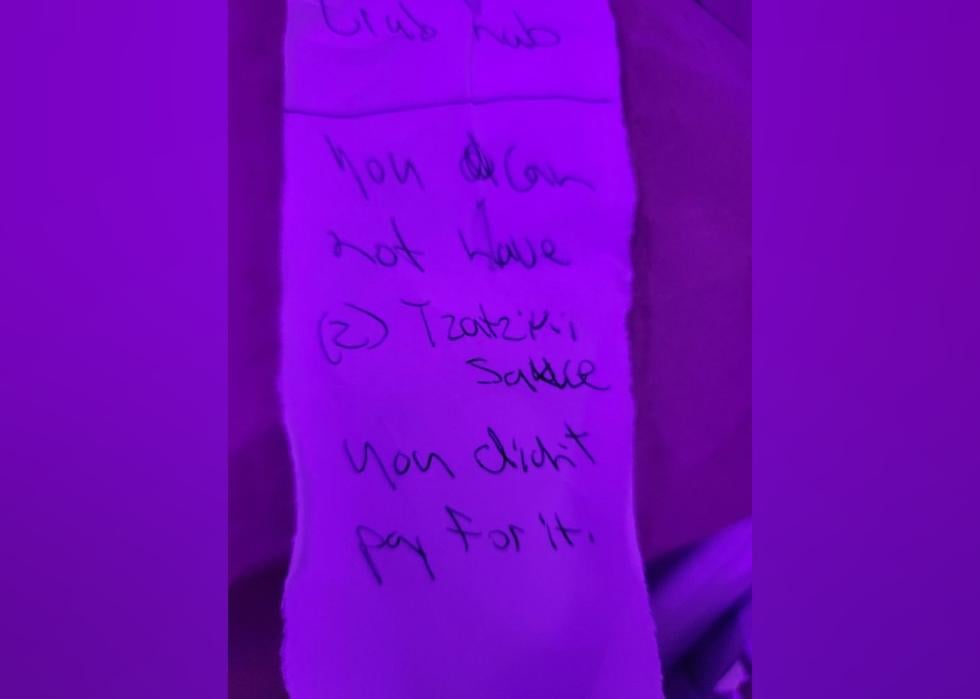 hub
You can
not have
(2) Tzatziki
Sauce
You didn't
pay for it.